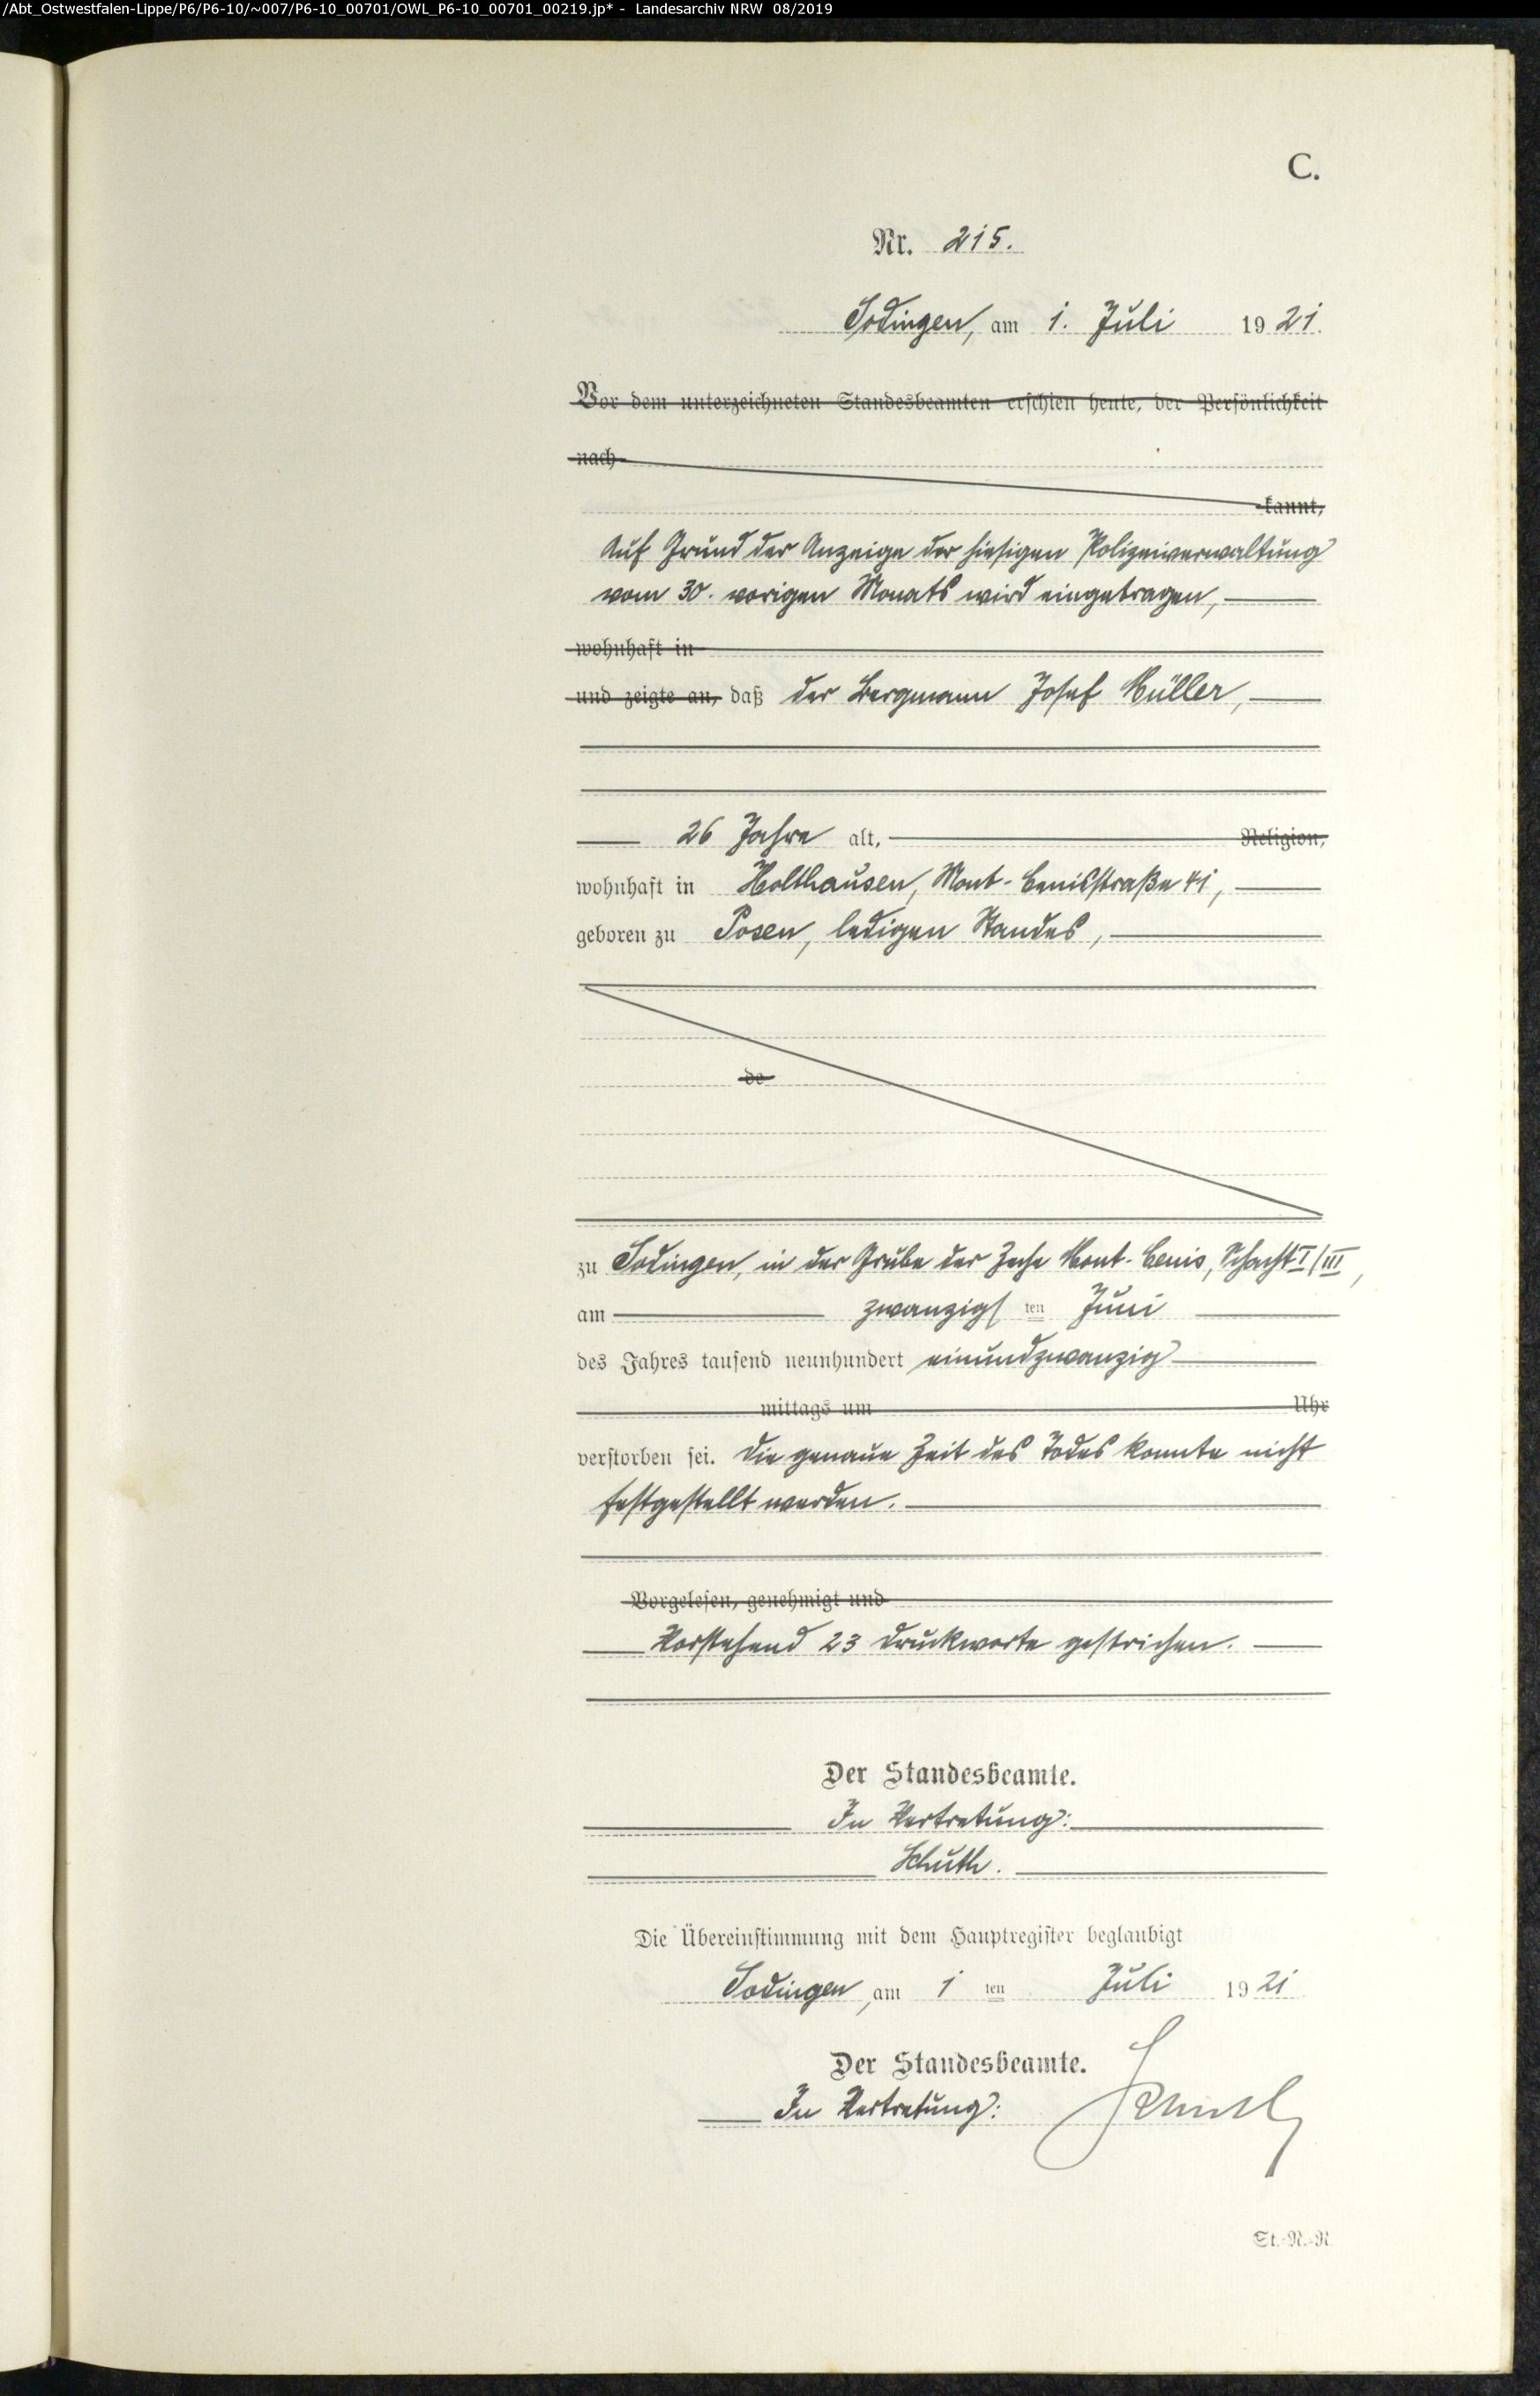 /Abt_Ostwestfalen-Lippe/P6/P6-10/~007/P6-10_00701/OWL_P6-10_00701_00219.jp* - Landesarchiv NRW 08/2019
C.
Nr. 215.
Sodingen, am 1. Juli 1921.
Vor dem unterzeichneten Standesbeamten erschien heute, der Persönlichkeit
nach
kannt,
Auf Grund der Anzeige der hiesigen Polizeiverwaltung
vom 30. vorigen Monats wird eingetragen,
wohnhaft in
und zeigte an, daß der Bergmann Josef Müller,
26 Jahre alt, Religion,
wohnhaft in Holthausen, Mont-Cenisstraße 41,
geboren zu Posen, ledigen Standes,
de
zu Sodingen, in der Grube der Zeche Mont-Cenis, Schacht I/III,
am zwanzigs ten Juni
des Jahres tausend neunhundert einundzwanzig
mittags um Uhr
verstorben sei. Die genaue Zeit des Todes konnte nicht
festgestellt werden.
Vorgelesen, genehmigt und
Vorstehend 23 Druckworte gestrichen.
Der Standesbeamte.
In Vertretung:
Schuth.
Die Übereinstimmung mit dem Hauptregister beglaubigt
Sodingen, am 1 ten Juli 1921
Der Standesbeamte.
In Vertretung: Schuth
St.-N.-R.